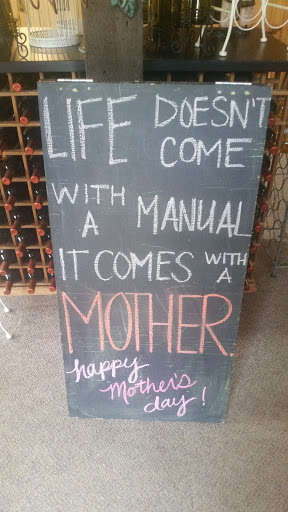 LIFE DOESN'T
COME
WITH A MANUAL
IT COMES WITH A
MOTHER
happy
Mother's
day!